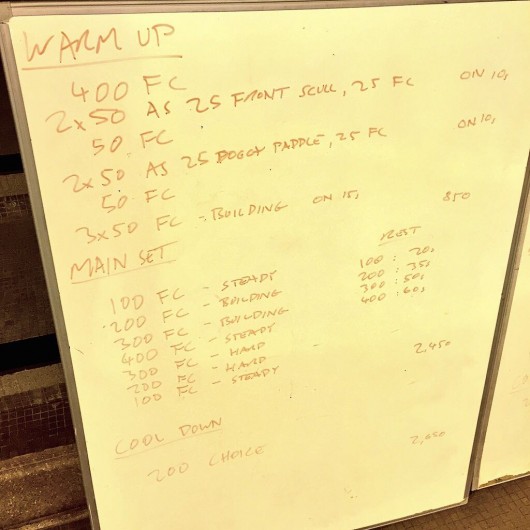 WARM UP
400 FC
2x50 AS 25 FRONT SCULL, 25 FC ON 10s
50 FC
2x50 AS 25 DOGGY PADDLE, 25 FC ON 10s
50 FC
3x50 FC - BUILDING ON 15s 850
MAIN SET
REST
100 FC - STEADY 100 : 20s
200 FC - BUILDING 200 : 35s
300 FC - BUILDING 300 : 50s
400 FC - STEADY 400 : 60s
300 FC - HARD
200 FC - HARD
100 FC - STEADY - 2,450
COOL DOWN
200 CHOICE 2,650